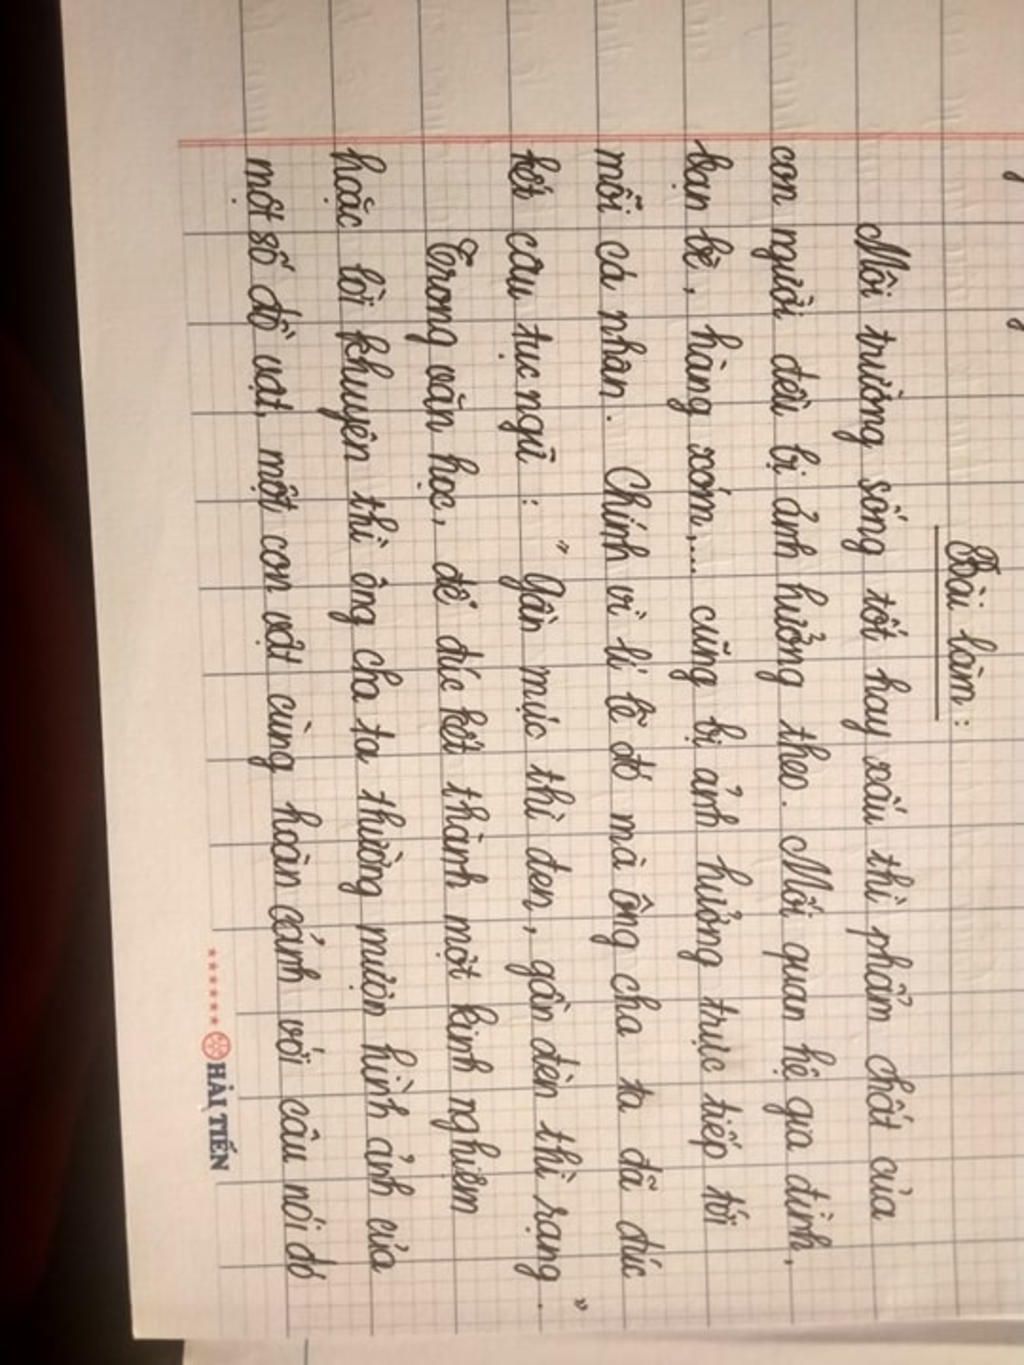 Bài làm:
Môi trường sống tốt hay xấu thì phẩm chất của
con người đều bị ảnh hưởng theo. Mối quan hệ gia đình,
bạn bè, hàng xóm,... cũng bị ảnh hưởng trực tiếp tới
mỗi cá nhân. Chính vì lí lẽ đó mà ông cha ta đã đúc
kết câu tục ngữ: "Gần mực thì đen, gần đèn thì rạng".
Trong văn học, để đúc kết thành một kinh nghiệm
hoặc lời khuyên thì ông cha ta thường mượn hình ảnh của
một số đồ vật, một con vật cùng hoàn cảnh với câu nói đó
HẢI TIẾN